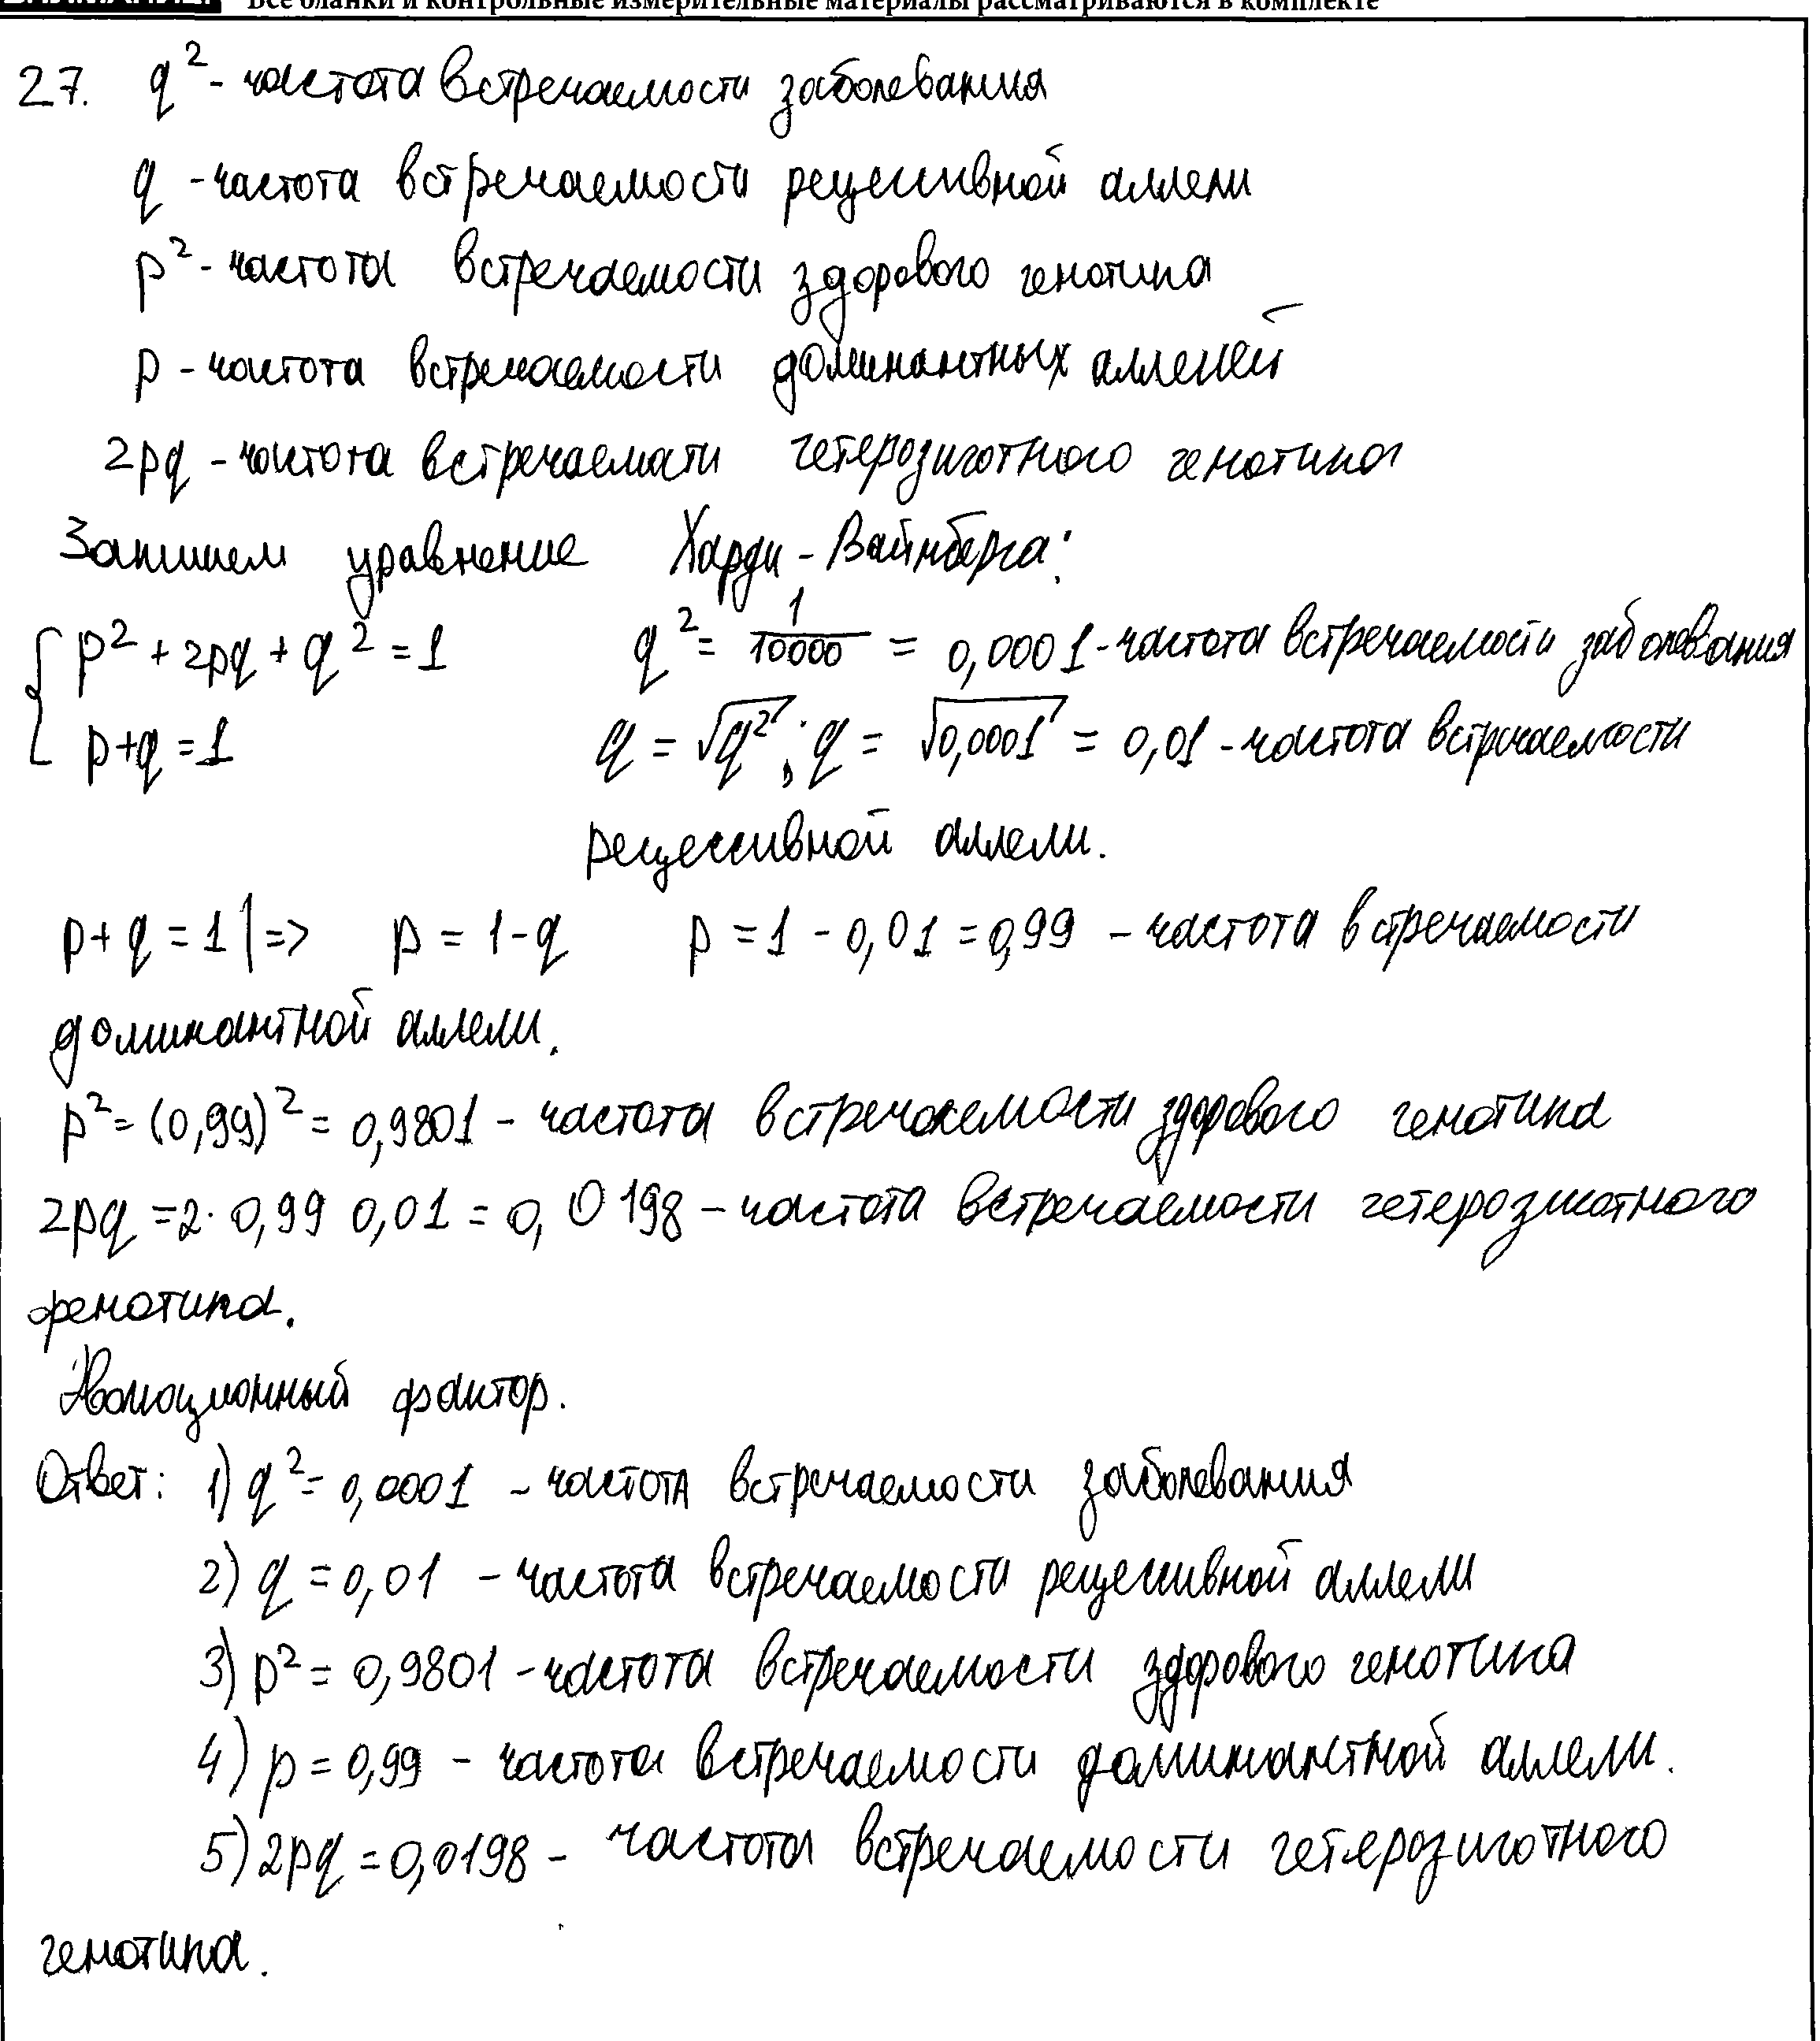 Все бланки и контрольные измерительные материалы рассматриваются в комплекте
27. q² - частота встречаемости заболевания
q - частота встречаемости рецессивной аллели
p² - частота встречаемости здорового генотипа
p - частота встречаемости доминантных аллелей
2pq - частота встречаемости гетерозиготного генотипа
Запишем уравнение Харди - Вайнберга:
p² + 2pq + q² = 1 q² = 1/10000 = 0,0001 - частота встречаемости заболевания
p+q = 1 q = √q² ; q = √0,0001 = 0,01 - частота встречаемости
рецессивной аллели.
p + q = 1 | => p = 1 - q p = 1 - 0,01 = 0,99 - частота встречаемости
доминантной аллели.
p² = (0,99)² = 0,9801 - частота встречаемости здорового генотипа
2pq = 2 · 0,99 0,01 = 0,0198 - частота встречаемости гетерозиготного
фенотипа.
Эволюционный фактор.
Ответ: 1) q² = 0,0001 - частота встречаемости заболевания
2) q = 0,01 - частота встречаемости рецессивной аллели
3) p² = 0,9801 - частота встречаемости здорового генотипа
4) p = 0,99 - частота встречаемости доминантной аллели.
5) 2pq = 0,0198 - частота встречаемости гетерозиготного
генотипа.